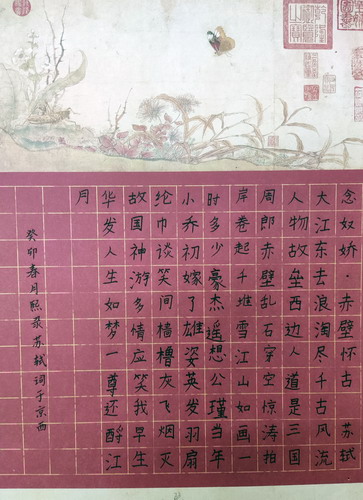 念奴娇·赤壁怀古 苏轼
大江东去浪淘尽千古风流
人物故垒西边人道是三国
周郎赤壁乱石穿空惊涛拍
岸卷起千堆雪江山如画一
时多少豪杰遥想公瑾当年
小乔初嫁了雄姿英发羽扇
纶巾谈笑间樯橹灰飞烟灭
故国神游多情应笑我早生
华发人生如梦一尊还酹江
月
癸卯春月熙录苏轼词于京西